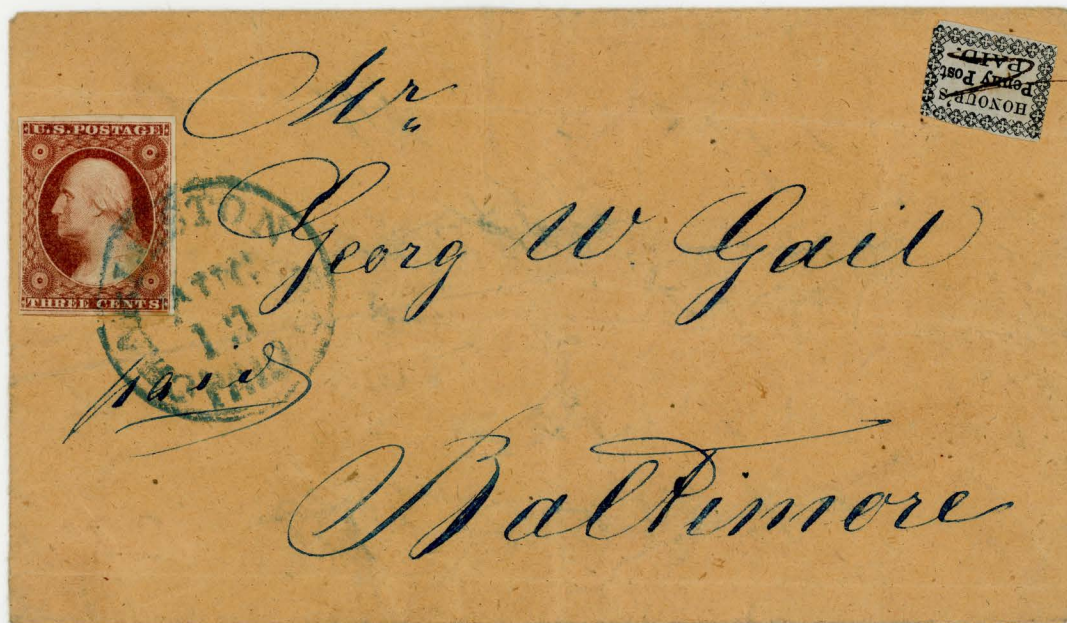 Mr
Georg W Gail
Baltimore
paid
U.S. POSTAGE
THREE CENTS
HONOUR'S
Penny Post
PAID.
13